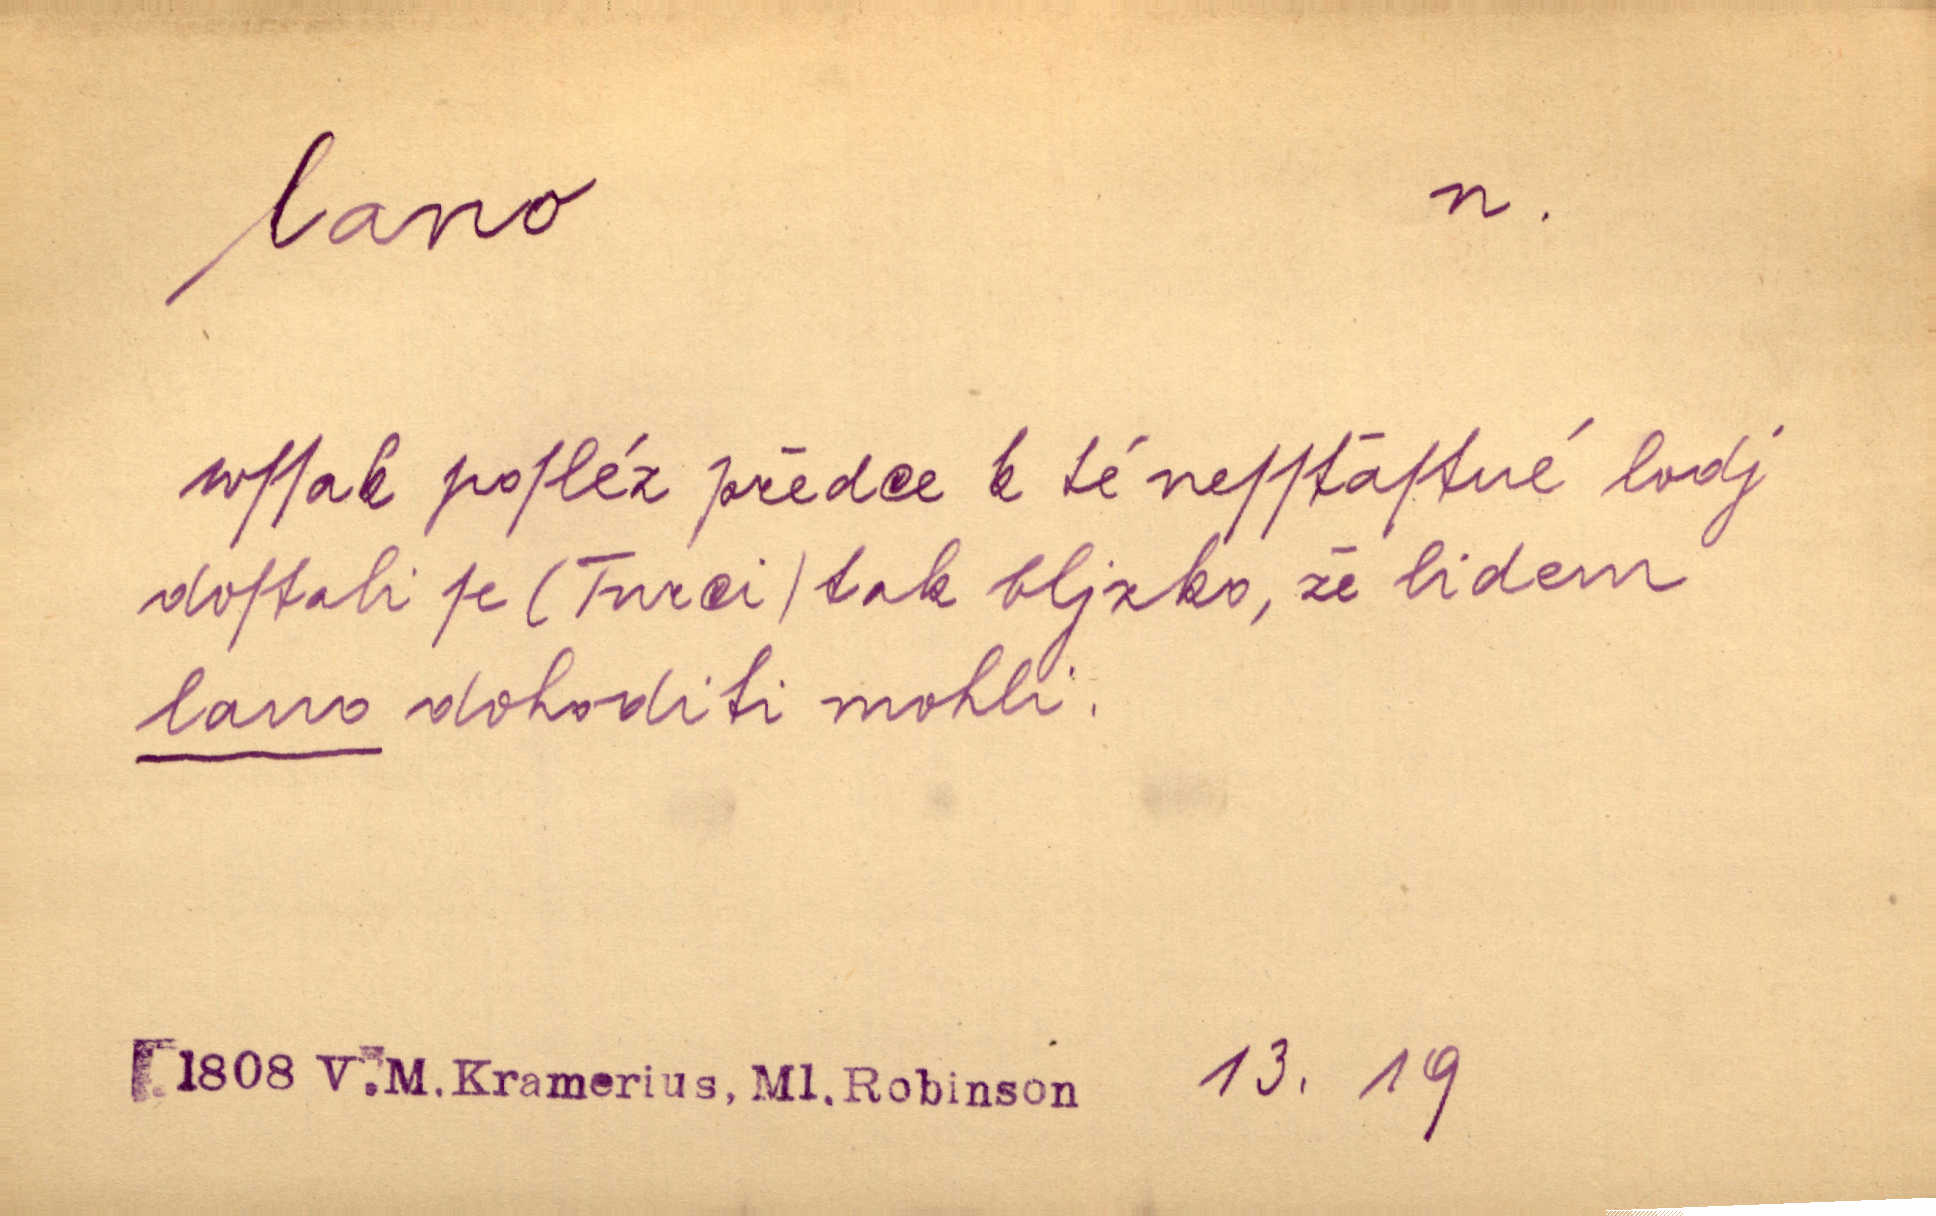 lano n.
wſſak poſléz předce k té neſſťaſtné lodj
doſtali ſe (Turci) tak bljzko, že lidem
lano dohoditi mohli.
1808 V.M.Kramerius, Ml.Robinson 13. 19